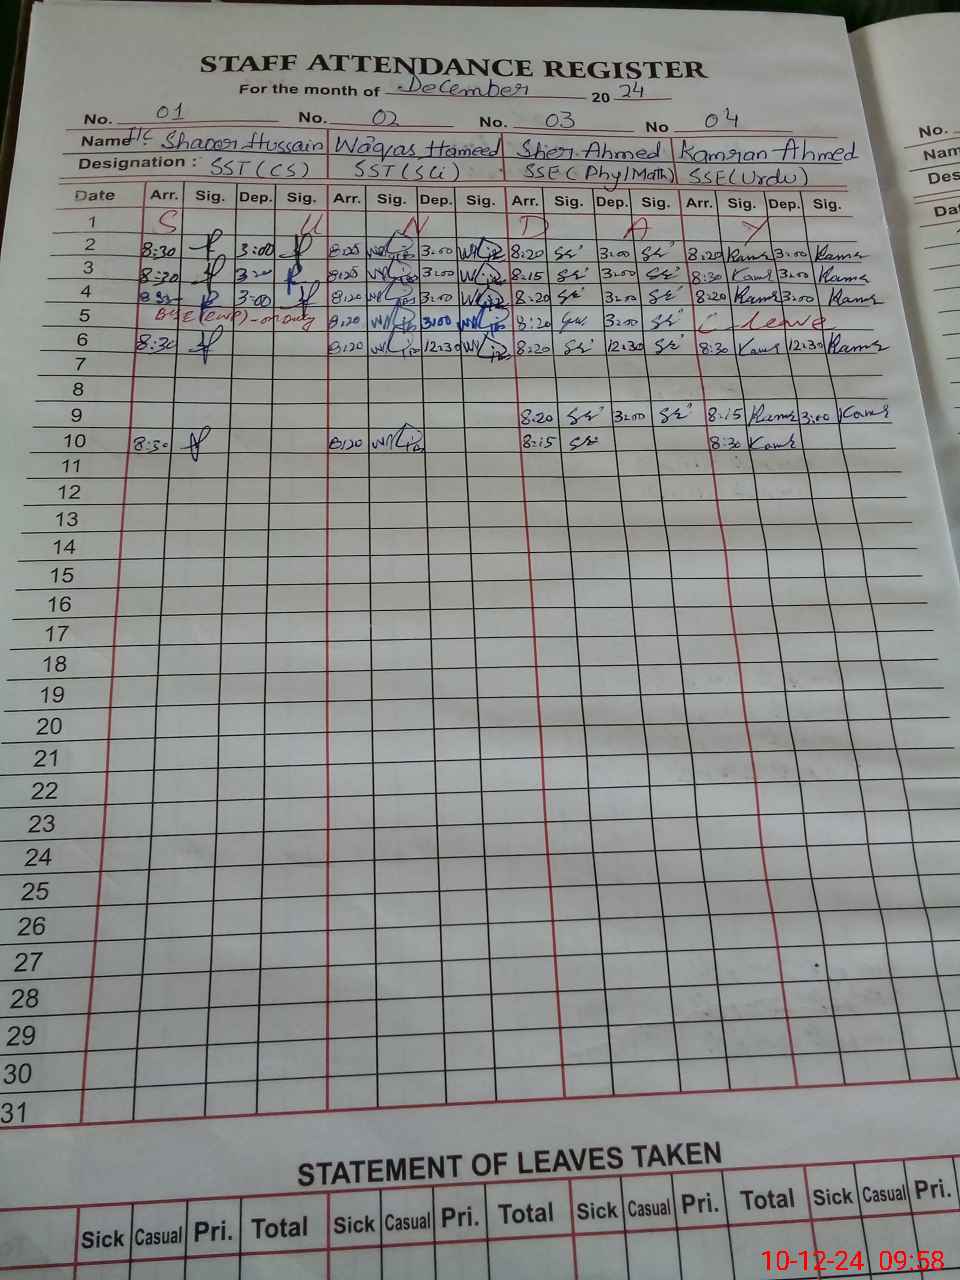 STAFF ATTENDANCE REGISTER
For the month of December 20 24
No. 01 No. 02 No. 03 No 04
Name I/c. Shapoor Hussain Waqas Hameed Sher Ahmed Kamran Ahmed
Designation : SST(CS) SST(Sci) SSE(Phy/Math) SSE(Urdu)
Date Arr. Sig. Dep. Sig. Arr. Sig. Dep. Sig. Arr. Sig. Dep. Sig. Arr. Sig. Dep. Sig.
1 S U N D A Y
2 8:30 3:00 8:25 3:00 8:20 3:00 8:20 Kamr 3:00 Kamr
3 8:30 3:00 8:25 3:00 8:15 3:00 8:30 Kamr 3:00 Kamr
4 8:30 3:00 8:20 3:00 8:20 3:00 8:20 Kamr 3:00 Kamr
5 on duty 8:20 3:00 8:20 3:00 C-leave
6 8:30 8:20 12:30 8:20 12:30 8:30 Kamr 12:30 Kamr
7
8
9 8:20 3:00 8:15 Kamr 3:00 Kamr
10 8:30 8:20 8:15 8:30 Kamr
11
12
13
14
15
16
17
18
19
20
21
22
23
24
25
26
27
28
29
30
31
STATEMENT OF LEAVES TAKEN
Sick Casual Pri. Total Sick Casual Pri. Total Sick Casual Pri. Total Sick Casual Pri.
10-12-24 09:58
No.
Nam
Des
Da